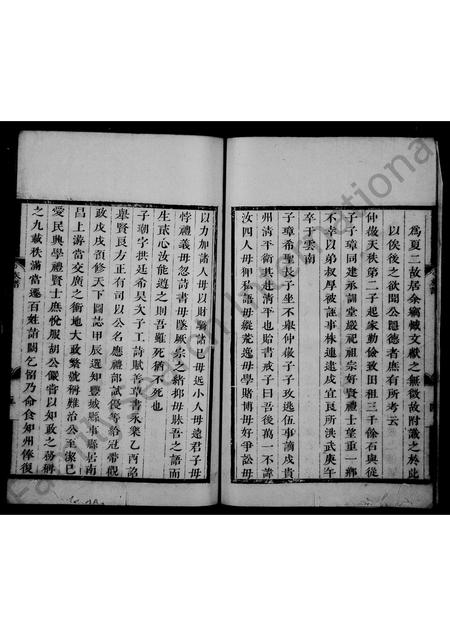 爲夏二故居余竊慨文獻之無徵故附識之於此
以俟後之欲聞公隱德者庶有所考云
仲儀天秩第二子起家勤儉致田租三千餘石與從
子子章同建承訓堂嚴祀祖宗好賢禮士望重一鄉
不幸以弟叔厚被誣事株連逮戍宜良所洪武庚午
卒于雲南
子章希聖長子坐不舉仲儀子子玫逃伍事謫戍貴
州清平衛其赴清平也貽書戒子曰吾後萬一不諱
汝四人毋狎私語毋縱荒逸毋學賭博毋好爭訟毋
以力加諸人毋以財驕諸已毋远小人毋遠君子毋
悖禮義毋忽詩書毋墜厥宗之緒抑毋朕吾之語而
生忲心汝能遵之則吾雖死猶不死也
子瑚字拱廷希昊次子工詩賦善草書永樂乙酉詔
舉賢良方正有司以公名應禮部試優等給冠帶觀
政戊戌領修天下圖誌甲辰選知豐城縣事縣居南
昌上游當交廣之衝地大政繁號稱難治公至潔己
愛民興學禮賢士庶悅服胡公儼嘗以知政之務稱
之九載秩滿當遷百姓詣闕乞留乃命食知州俸復
FamilySearch International